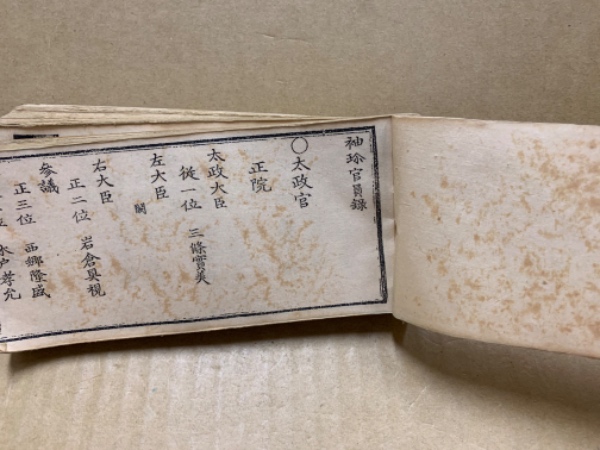 袖珍官員録
〇太政官
正院
太政大臣
從一位 三條實美
左大臣
闕
右大臣
正二位 岩倉具視
參議
正三位 西郷隆盛
木戸孝允